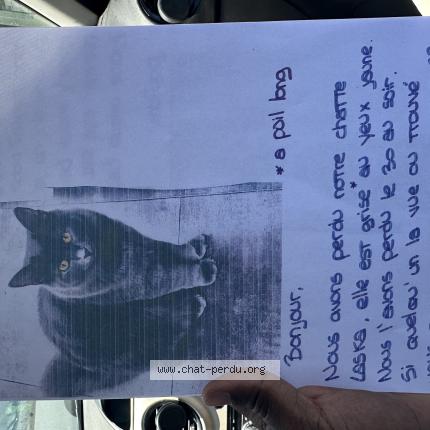 * a poil long
Bonjour,
Nous avons perdu notre chatte
Laska, elle est grise* au yeux jaune.
Nous l'avons perdu le 30 au soir.
Si quelqu'un la vue ou trouvé
www.chat-perdu.org